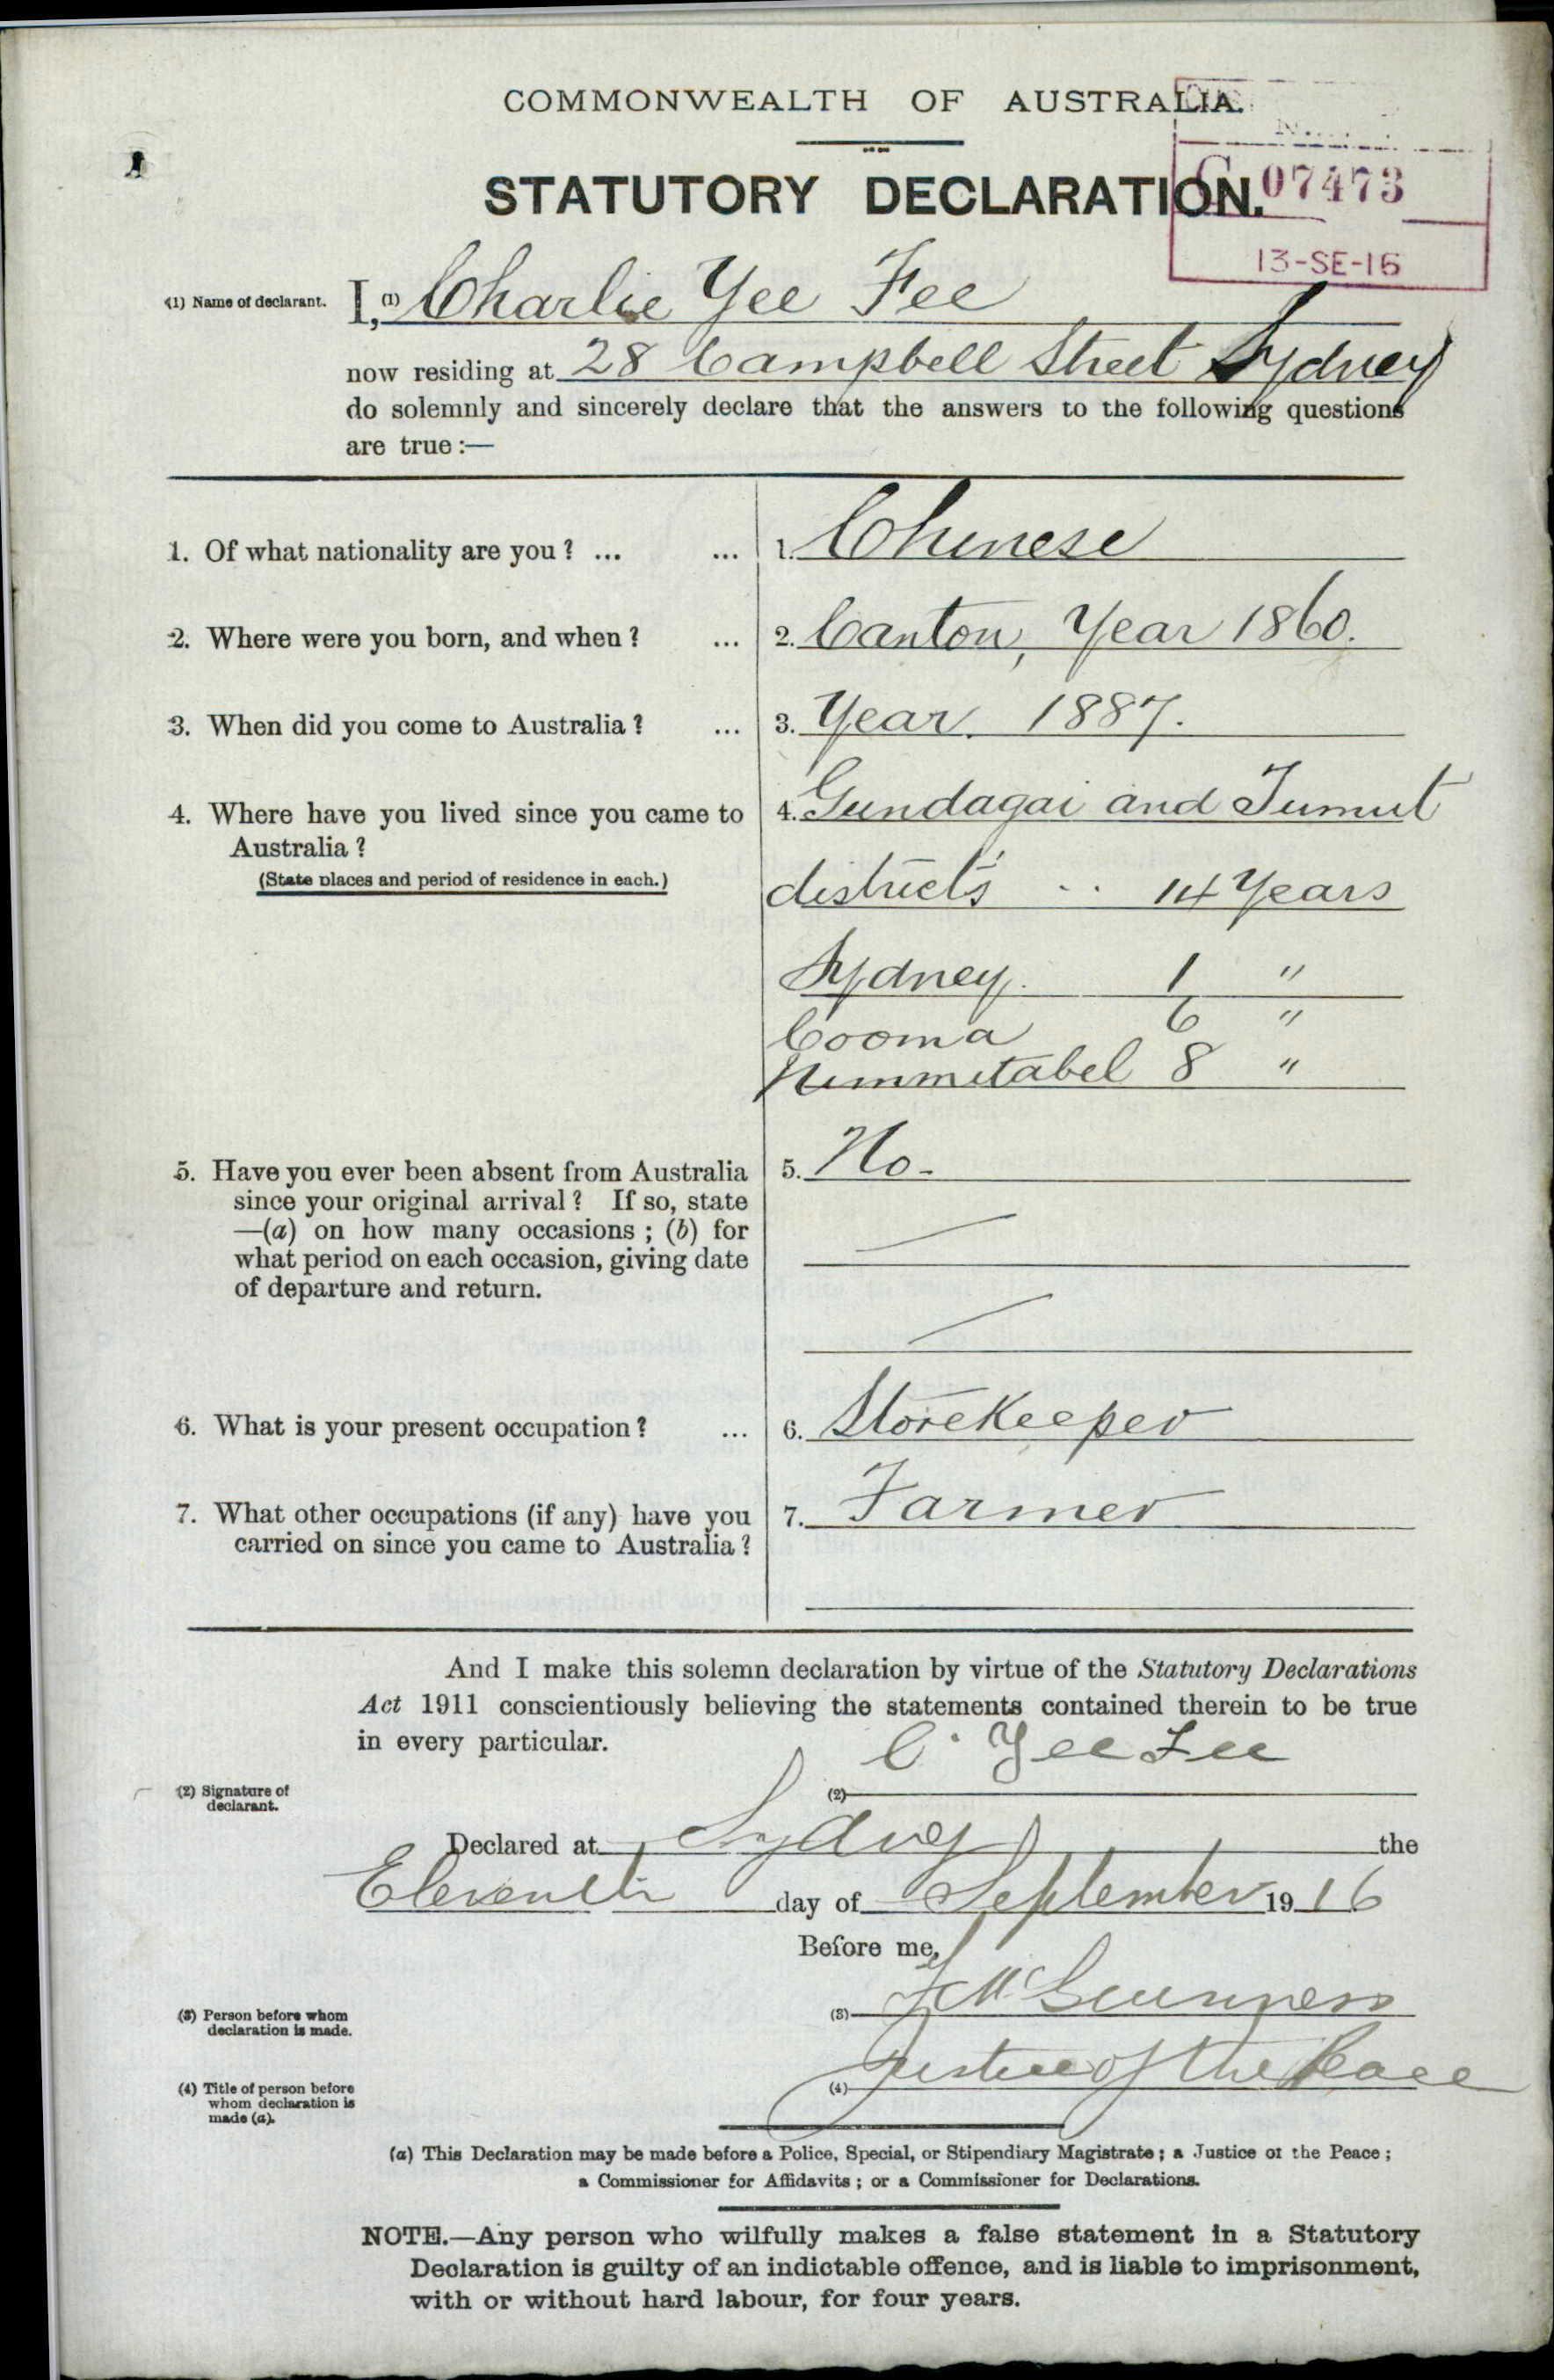 COMMONWEALTH OF AUSTRALIA.
STATUTORY DECLARATION.
C 07473
13-SE-16
(1) Name of declarant. I, (1) Charlie Yee Fee
now residing at 28 Campbell Street Sydney
do solemnly and sincerely declare that the answers to the following questions
are true:—
1. Of what nationality are you? ... ... 1. Chinese
2. Where were you born, and when? ... 2. Canton, Year 1860.
3. When did you come to Australia? ... 3. Year. 1887.
4. Where have you lived since you came to 4. Gundagai and Tumut
Australia?
(State places and period of residence in each.)
districts .. 14 Years
Sydney. 1 "
Cooma 6 "
Nimmitabel 8 "
5. Have you ever been absent from Australia 5. No-
since your original arrival? If so, state
—(a) on how many occasions; (b) for
what period on each occasion, giving date
of departure and return.
6. What is your present occupation? ... 6. Storekeeper
7. What other occupations (if any) have you 7. Farmer
carried on since you came to Australia?
And I make this solemn declaration by virtue of the Statutory Declarations
Act 1911 conscientiously believing the statements contained therein to be true
in every particular.
C. Yee Fee
(2) Signature of (2)
declarant.
Declared at Sydney the
Eleventh day of September 1916
Before me,
(3) Person before whom (3) McGuinness
declaration is made.
Justice of the Peace
(4) Title of person before (4)
whom declaration is
made (a).
(a) This Declaration may be made before a Police, Special, or Stipendiary Magistrate; a Justice of the Peace;
a Commissioner for Affidavits; or a Commissioner for Declarations.
NOTE.—Any person who wilfully makes a false statement in a Statutory
Declaration is guilty of an indictable offence, and is liable to imprisonment,
with or without hard labour, for four years.